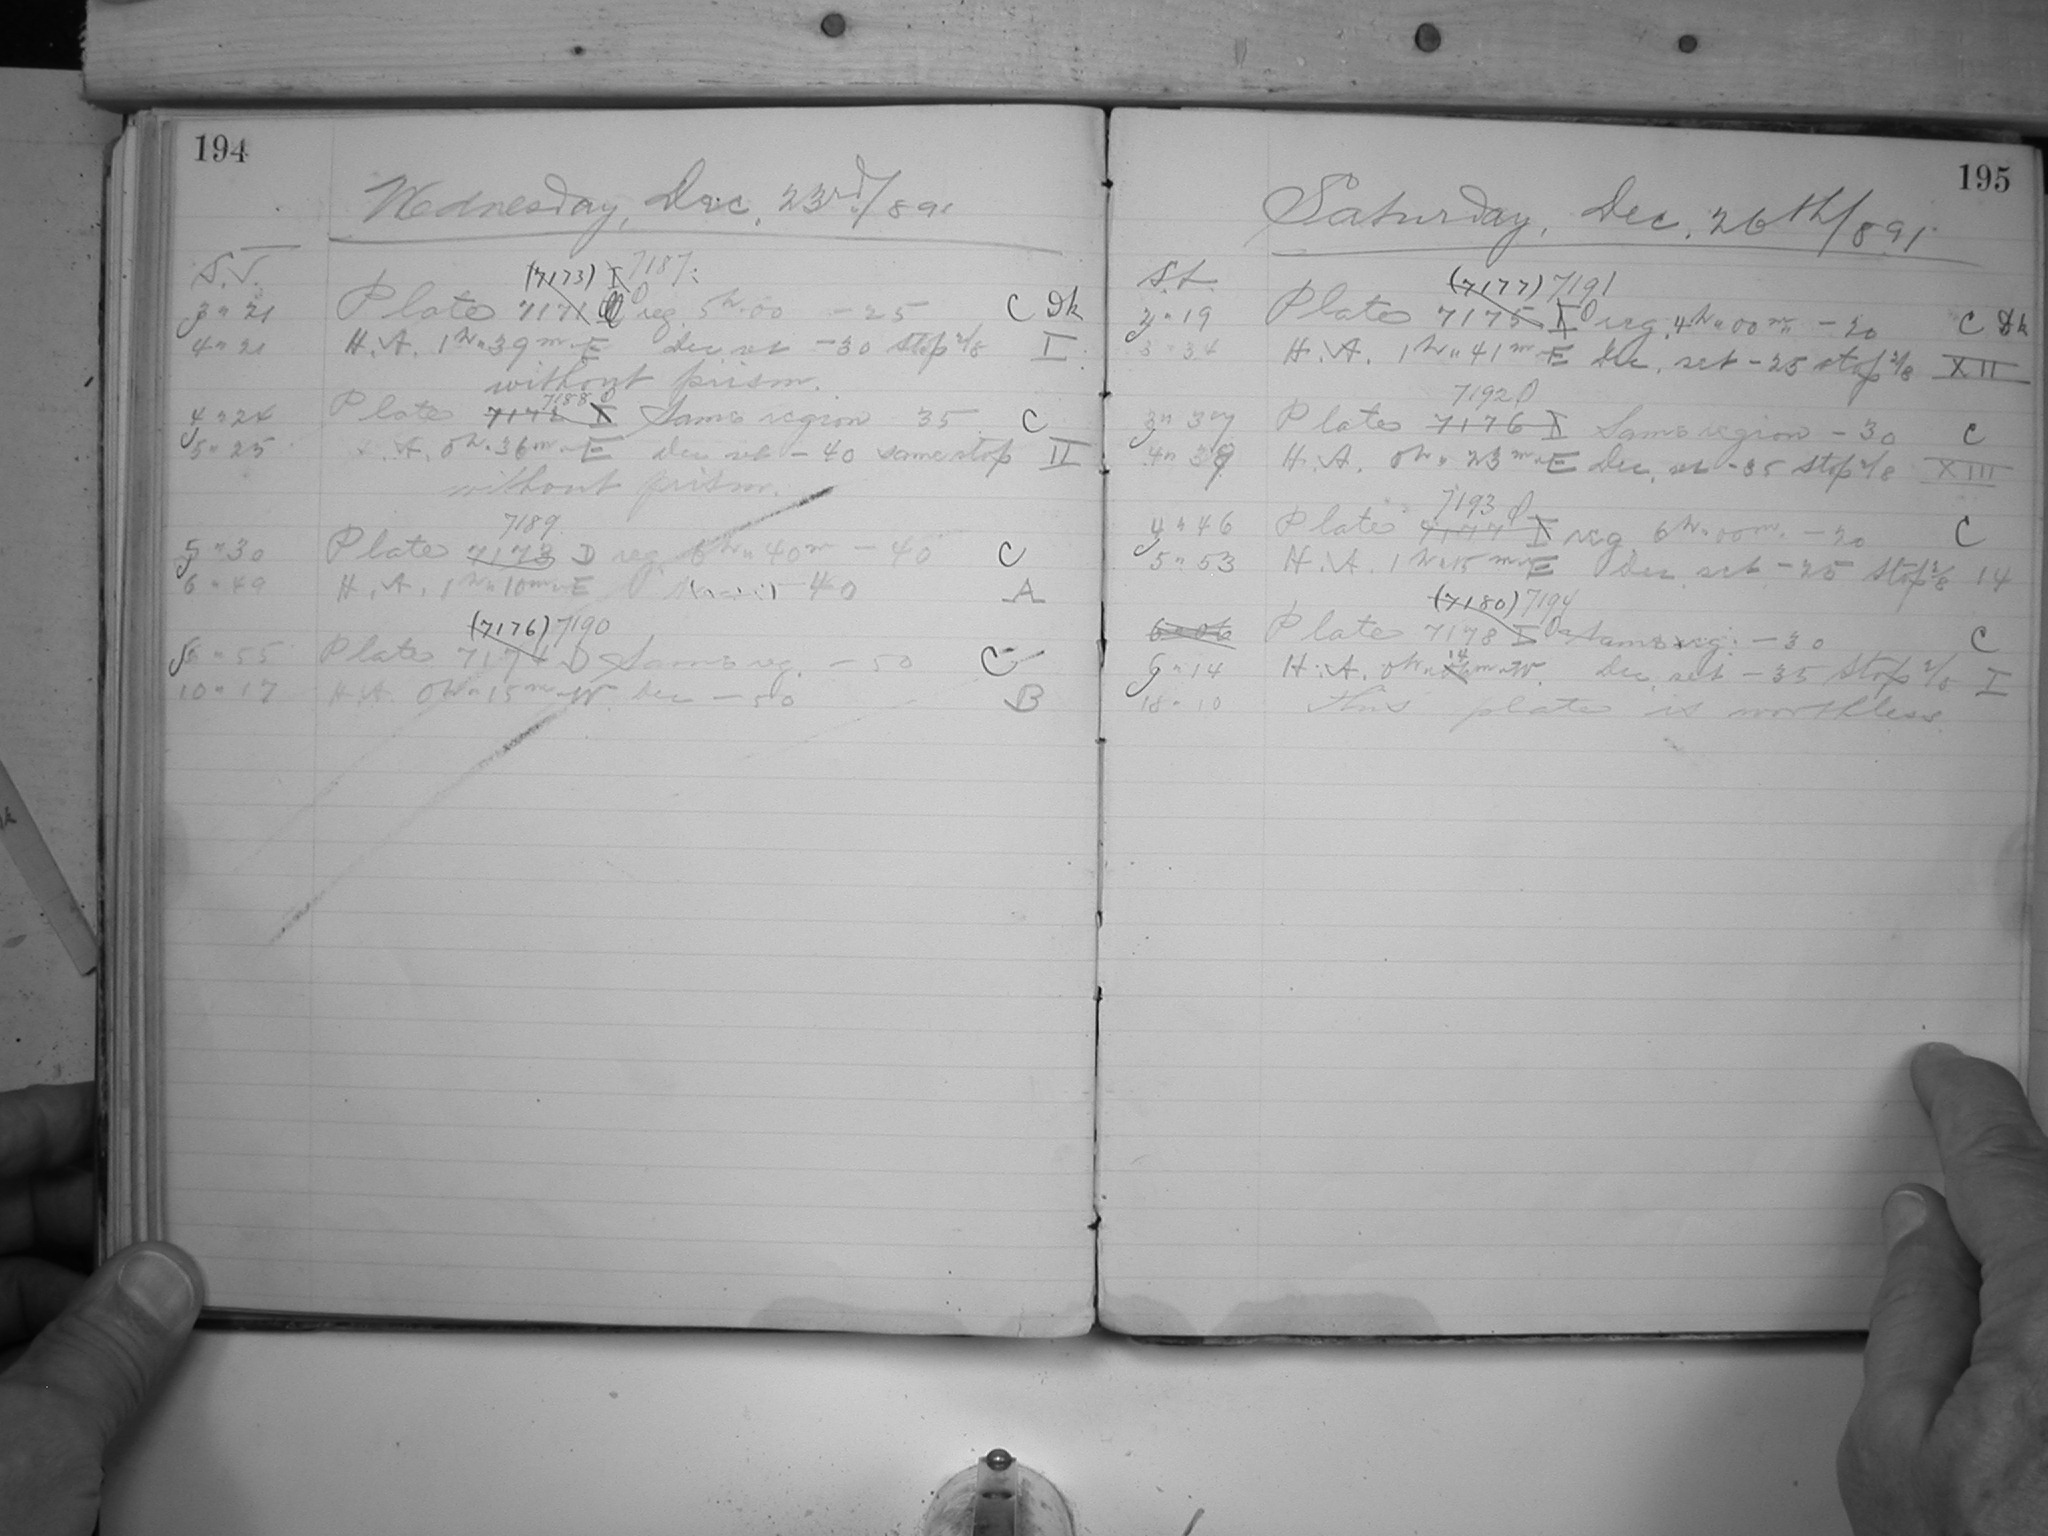 194
Wednesday, Dec, 23rd/891
S.T.
(7173) I 7187
3 " 21 Plate 7171 reg. 5h.00 -25 C Dk
4 " 21 H.A. 1h " 39m E Dec. set -30 stop 2/8 I
without prism.
7188
4 " 24 Plate 7172 I Same region 35 C
5 " 25 H.A. 0h. 36m. E dec set -40 same stop II
without prism.
7189
5 " 30 Plate 7173 D reg. 40m -40 C
6 " 49 H.A. 1h " 10m. E -40 A
(7176) 7190
6 " 55 Plate 7174 D Same reg. -50 C
10 " 17 H.A. 0h " 15m W. Dec -50 B
195
Saturday, Dec, 26th/891
S.t.
(7177) 7191
2 " 19 Plate 7175 I reg. 4h " 00m -20 C Dk
3 " 34 H.A. 1h " 41m E Dec. set -25 stop 2/8 XII
7192
3 " 37 Plate 7176 I Same region -30 C
4 " 39 H.A. 0h " 23m E Dec. set -35 stop 2/8 XIII
7193
4 " 46 Plate 7177 I reg 6h " 00m. -20 C
5 " 53 H.A. 1h " 15m E Dec. set -25 stop 2/8 14
(7180) 7194
Plate 7178 I Same reg. -30 C
14
H.A. 0h " m. W. Dec. set -35 stop I
18 " 10 This plate is worthless